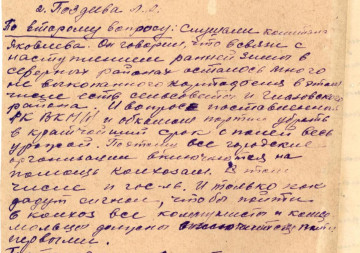 а. Поздива Л.С.
По второму вопросу: Слушали
Яковлева. Он говорит, что в связи с
наступлением ранней зимы в
северных районах осталось много
не выкопанного картофеля в том
числе есть и
района. И вопрос поставленный
РК ВКП(б) и обкомом партии убрать
в кратчайший срок с полей весь
урожай. Поэтому все городские
организации включаются на
помощь колхозам. В том
числе и гос-ль. И только как
дадут сигнал, чтобы пойти
в колхоз все коммунисты и комсо
мольцы должны включиться
первыми.